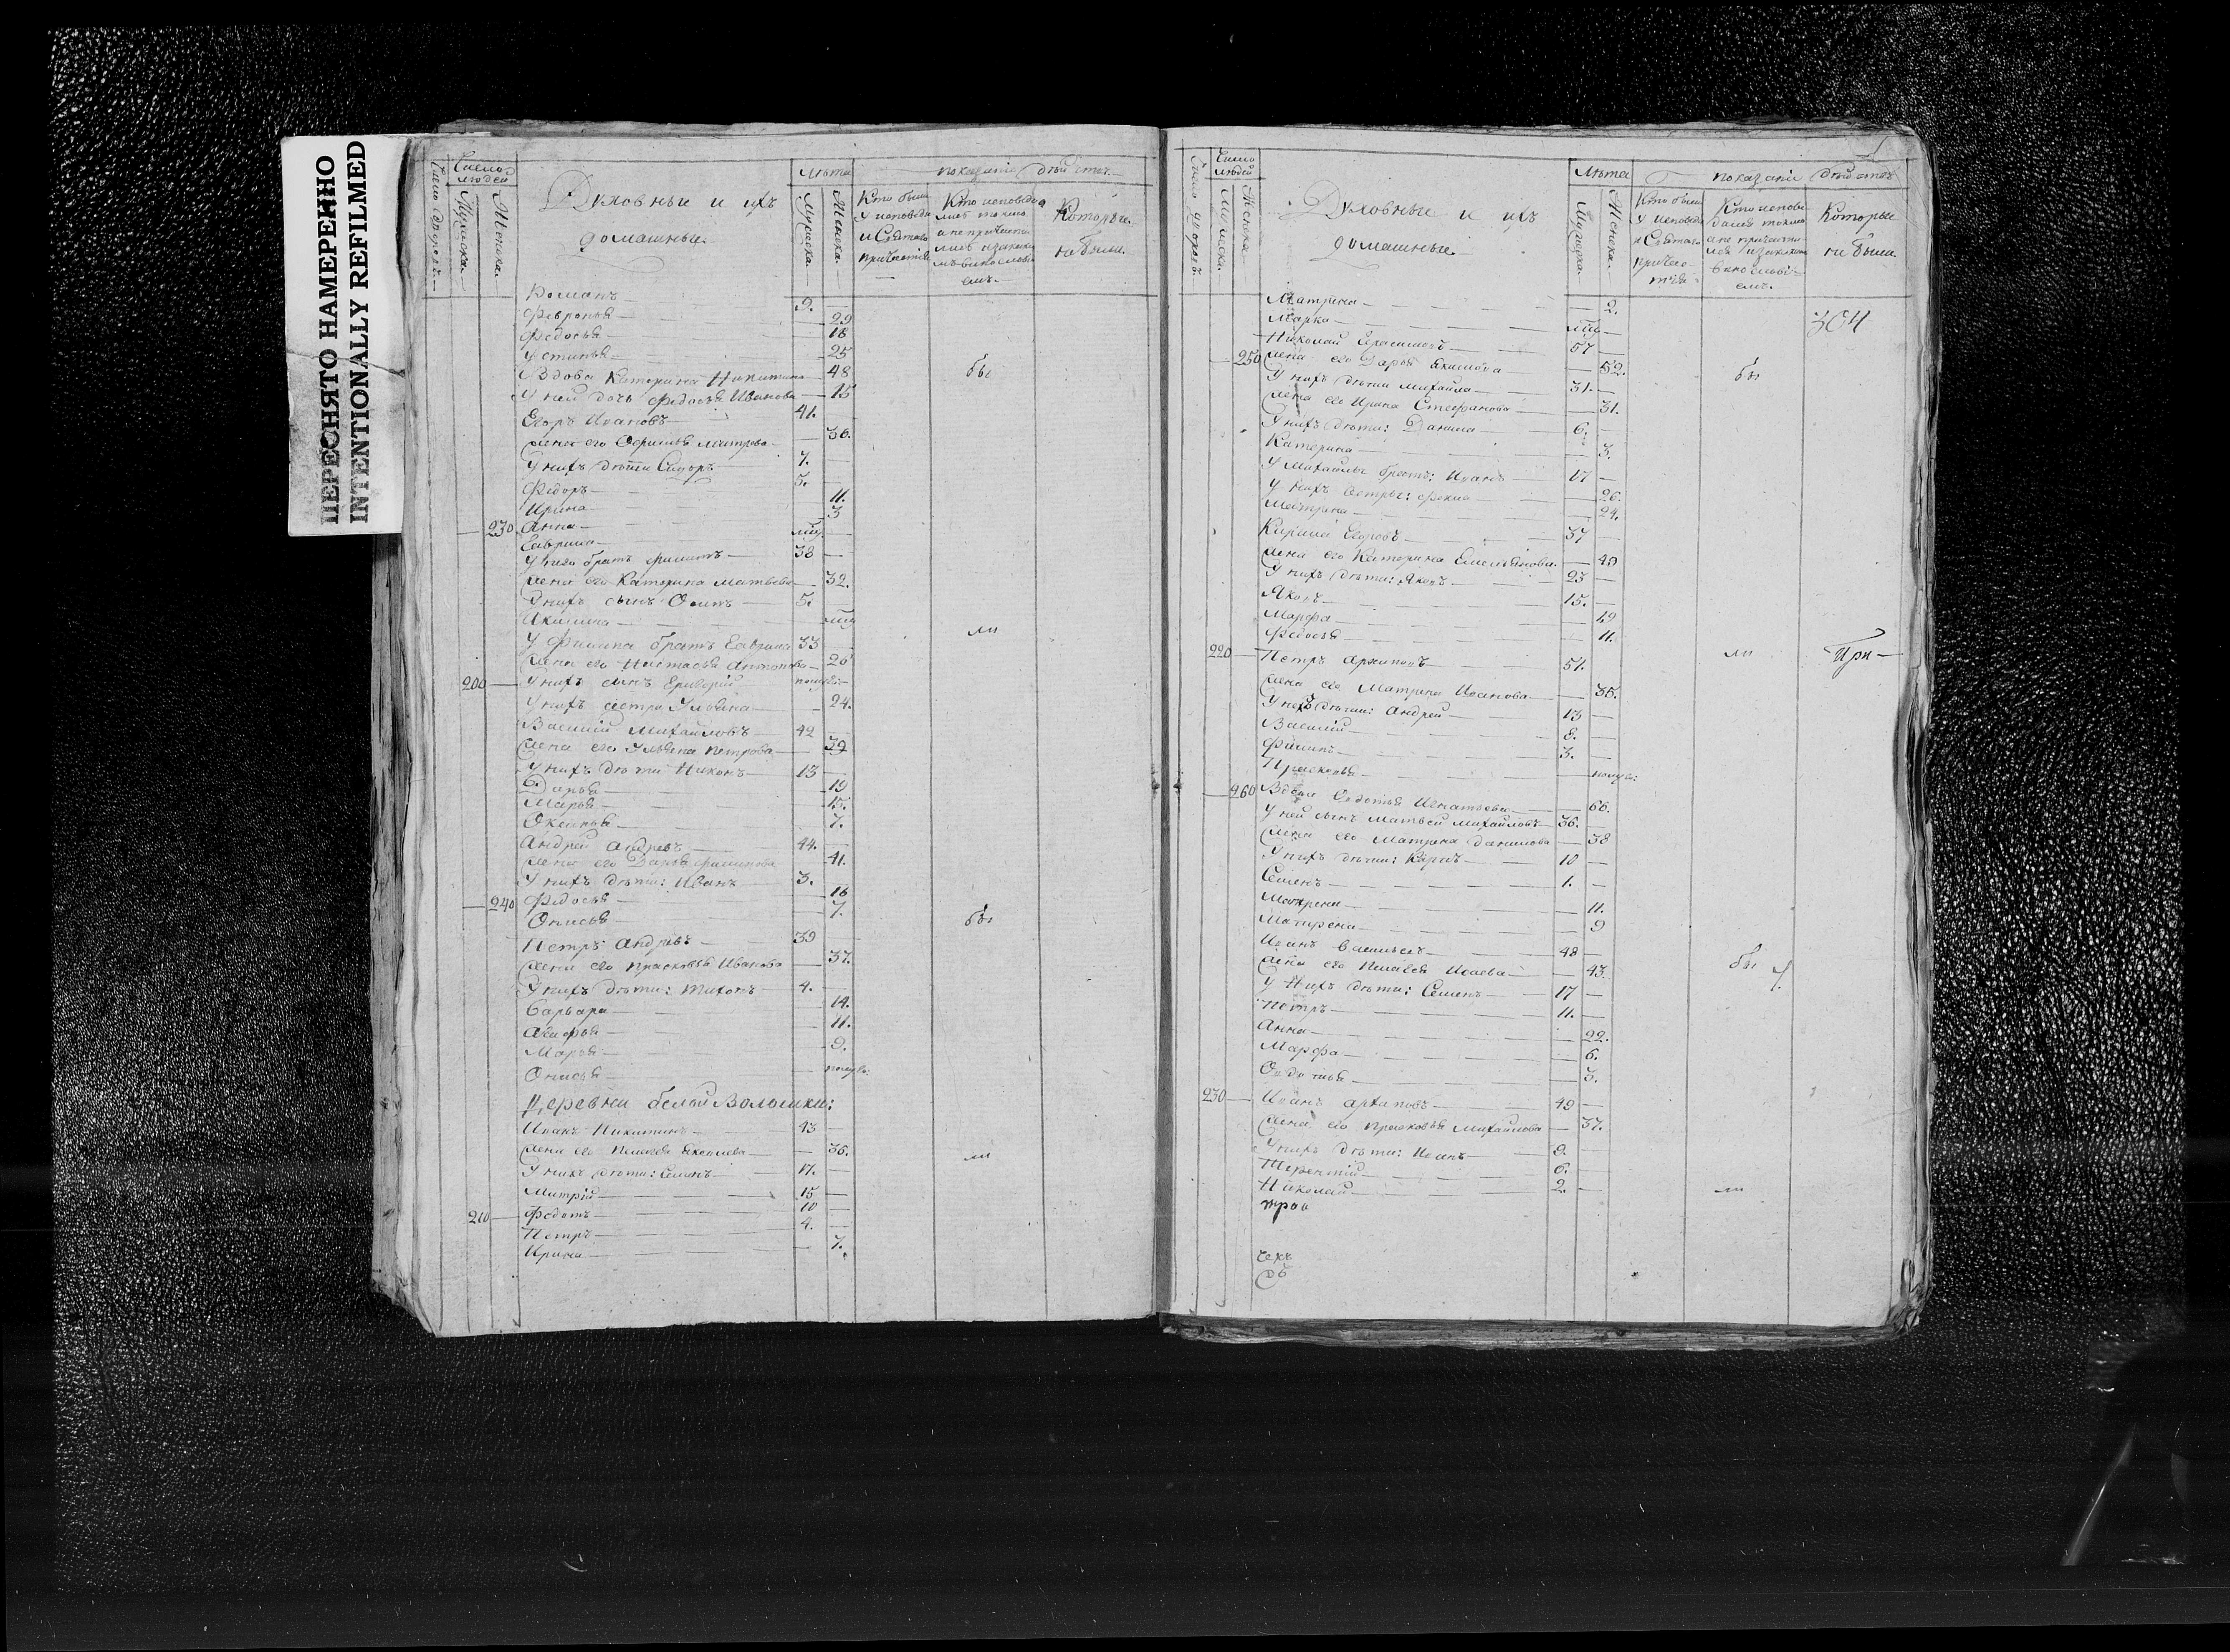 ПЕРЕСНЯТО НАМЕРЕННО
INTENTIONALLY REFILMED
Число дворовъ
Число людей
Мужеска
Женска
Духовные и ихъ
домашные.
Лѣта
Мужеска
Женска
показанiи дѣйства
Кто были у исповеди и Святаго причастiя
Которые не были.
Романъ 9.
Февронья 29
Федосья 18
Устинья 25
Вдова Катерина Никитина 48 бы
У ней дочь Федосья Иванова 15
Егоръ Ивановъ 41.
жена его 36.
У нихъ дѣти Сидоръ 7.
Федоръ 5.
Ирина 11.
230 Анна 3
Гаврила
У него братъ Филипъ 38
жена его Катерина Матвеева 32.
У нихъ сынъ Осипъ 5.
Акилина
У Филипа братъ Гаврила 33 ли
жена его Настасья Антонова 26
200 У нихъ сынъ Григорiй полуго:
У нихъ сестра Ульяна 24.
Василiй Михайловъ 42
жена его Ульяна Петрова 39
У нихъ дѣти Никонъ 13
Дарья 19
Марья 15.
Оксинья 7.
Андрей Андревъ 44.
жена его Дарья Филипова 41.
У нихъ дѣти: Иванъ 3.
240 Федосья 16
Онисья 7. бы
Петръ Андревъ 39
жена его Прасковья Иванова 37.
У нихъ дѣти: Тихонъ 4.
Варвара 14.
Агафья 11.
Марья 9.
Онисья полуго:
Деревни белой Волошки:
Иванъ Никитинъ 43
жена его Пелагея Яковлева 36. ли
У нихъ дѣти: Семенъ 17.
Митрiй 15
210 Федотъ 10
Петръ 4.
Ирина 7.
Число дворовъ
Число людей
Мужеска
Женска
Духовные и ихъ
домашные.
Лѣта
Мужеска
Женска
показанiи дѣйства
Кто были у исповеди и Святаго причастiя
Которые не были.
Матрена 2.
304
Марко
Николай Герасимовъ 57
250 жена его Дарья Якимова 52. бы
У нихъ дѣти Михайла 31.
жена его Ирина Стефанова 31.
У нихъ дѣти: Данила 6.
Катерина 3.
У Михайлы братъ: Иванъ 17
У нихъ сестры: Фекла 26.
Матрена 24.
Кирила Егоровъ 37
жена его Катерина Емельянова. 49
У нихъ дѣти: Яковъ 23
Яковъ 15.
Марфа 19
Федосья 11.
220 Петръ Архиповъ 51. ли При-
жена его Матрена Иванова 35.
У нихъ дѣти: Андрей 13
Василiй 8.
Филипъ 3.
Прасковья полуго:
260 Вдова Овдотья Игнатьева 66.
У ней сынъ Матвей Михайловъ 36.
жена его Матрена Данилова 38
У нихъ дѣти: Карпъ 10
Семенъ 1.
Матрена 11.
Матрена 9
Иванъ Васильевъ 48
жена его Пелагея Исаева 43. бы
У нихъ дѣти: Семенъ 17
Петръ 11.
Анна 22.
Марфа 6.
Овдотья 3.
230 Иванъ Архиповъ 49
жена его Прасковья Михайлова 37.
У нихъ дѣти: Иванъ 8.
Терентiй 6.
Николай 2. ли